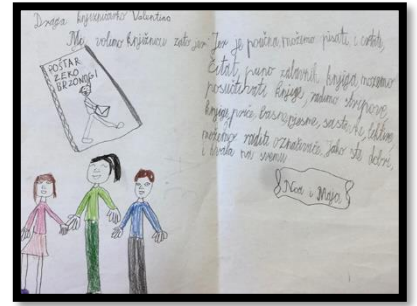 Draga knjižničarko Valentino
Mi volimo knjižnicu zato jer: Jer je poučna, možemo pisati i crtati,
čitati puno zabavnih knjiga, možemo
posuđivati knjige, radimo stripove,
knjige, priče, basne, pjesme, sastavke,
možemo raditi označivače, jako ste dobri
i hvala na svemu
Noa i Maja
POŠTAR
ZEKO
BRZONOGI